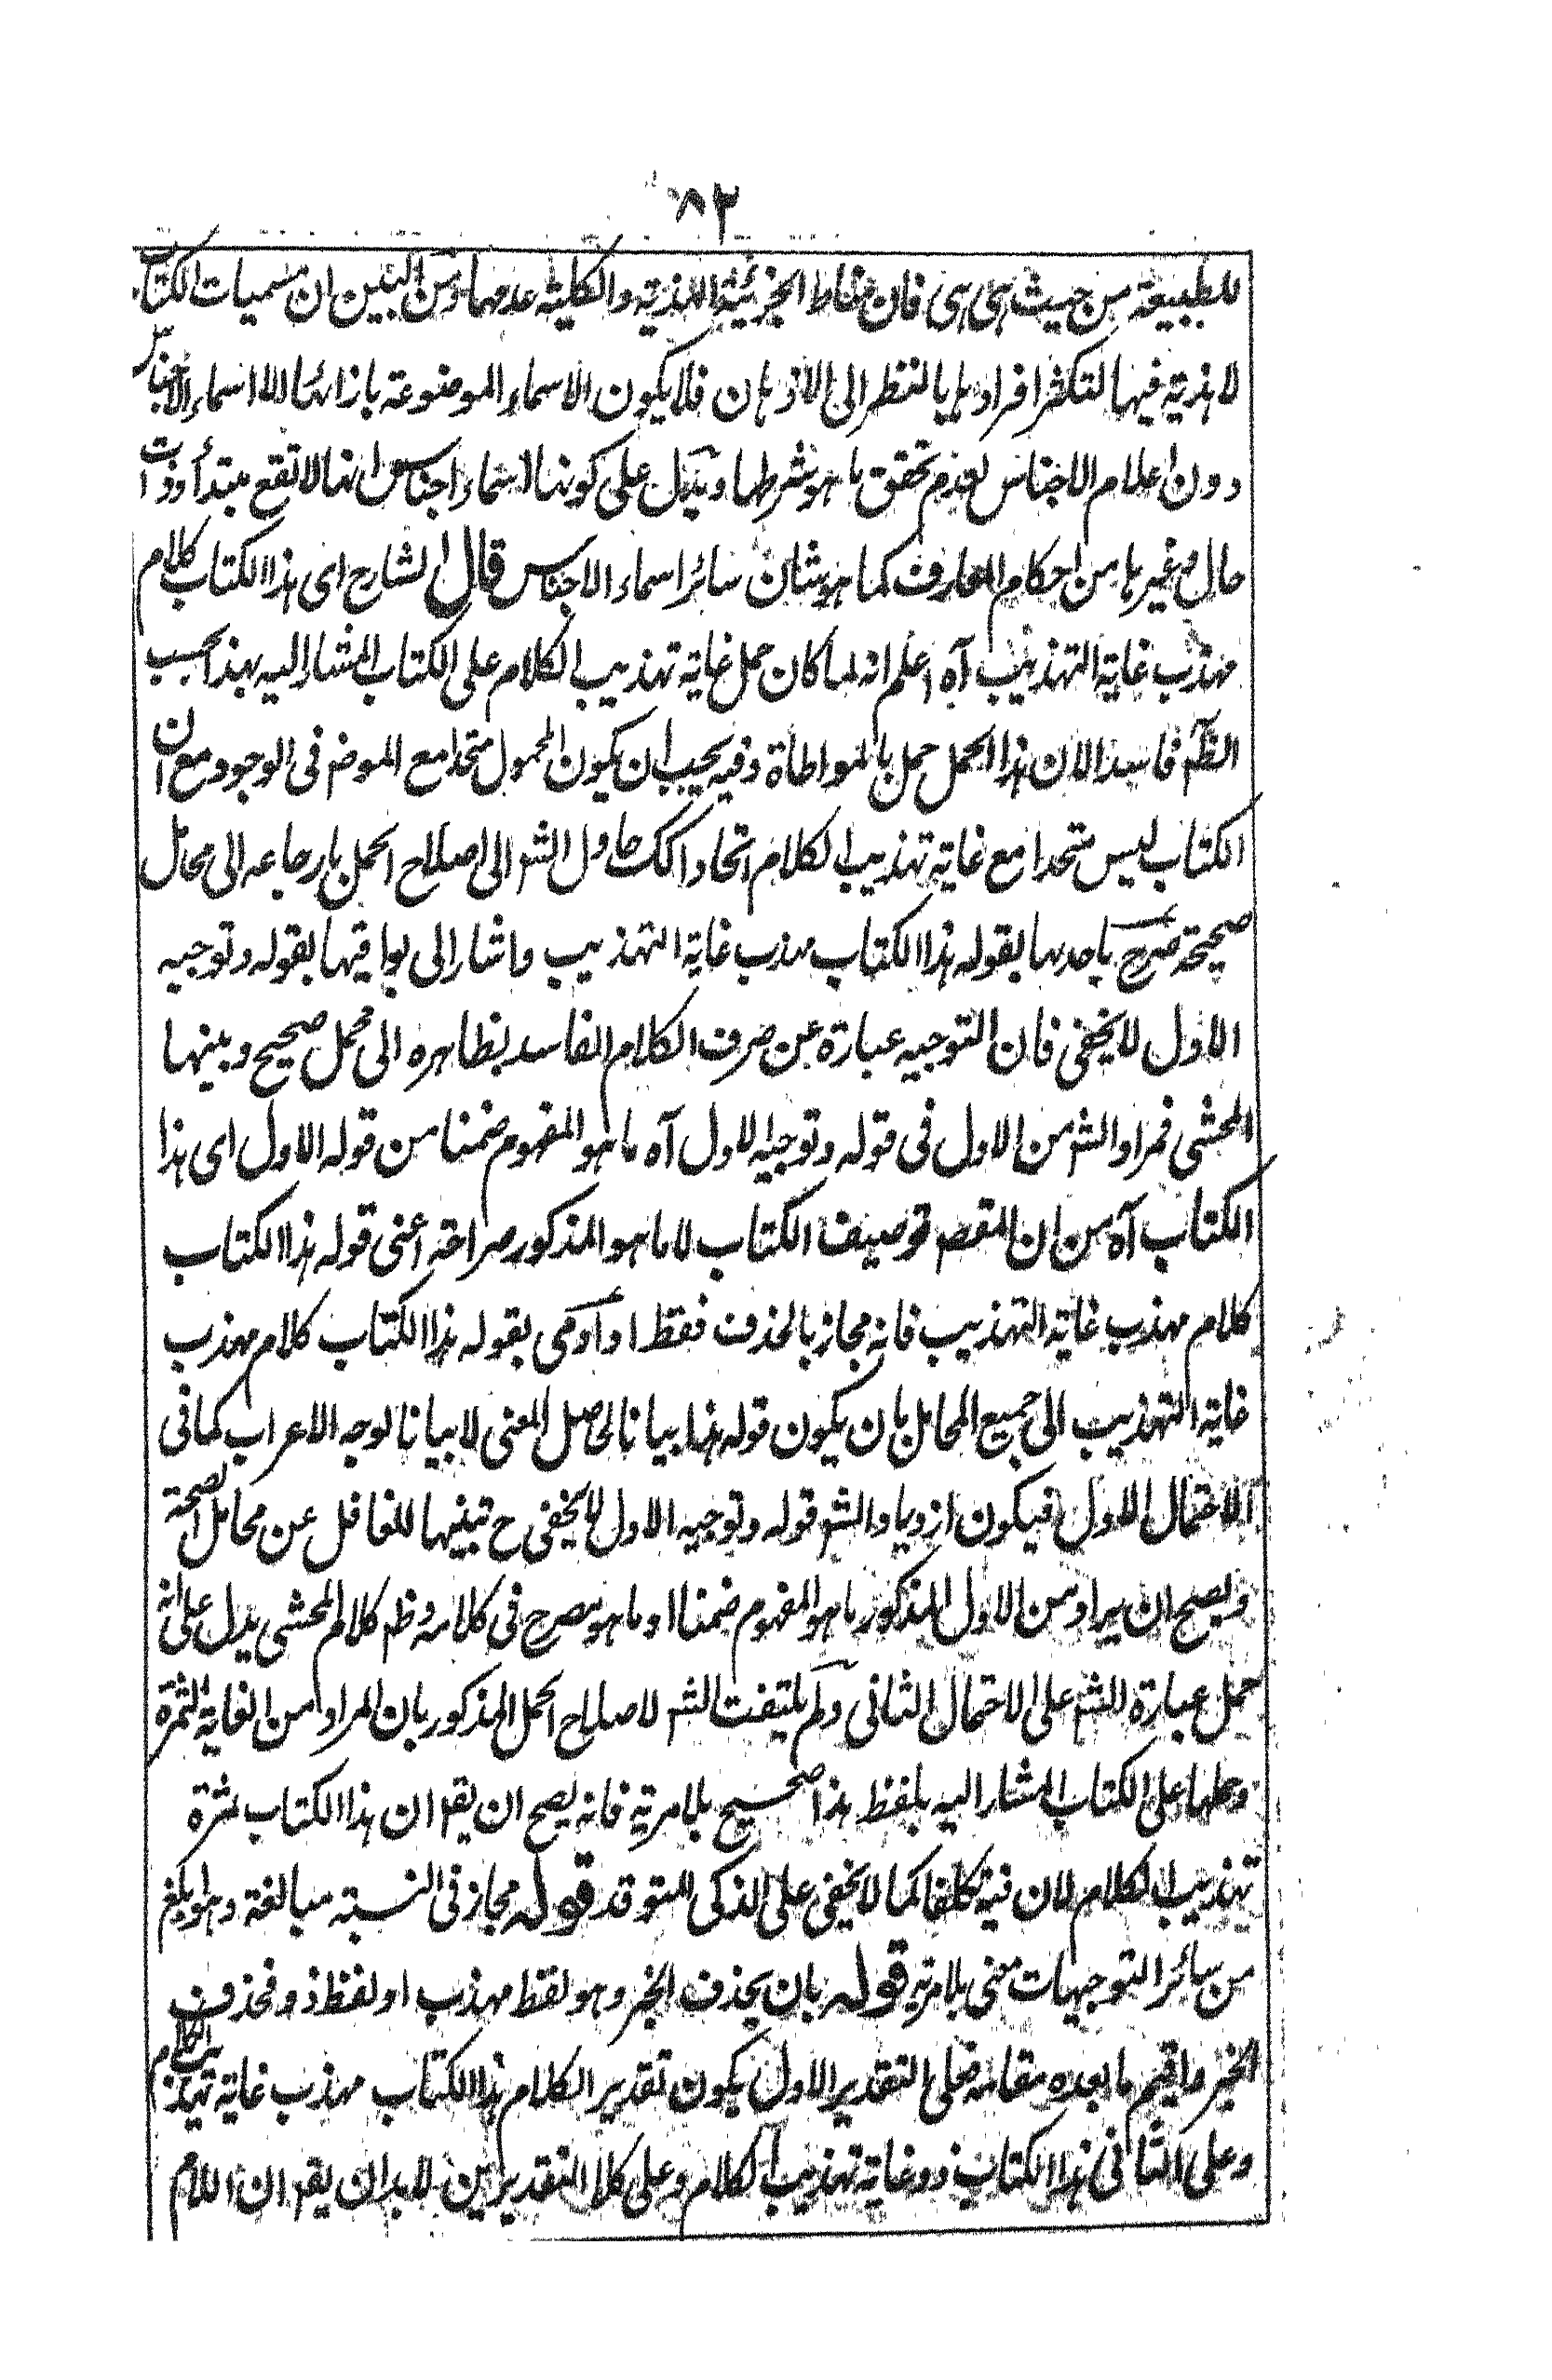 ٨٢
للطبيعة من حيث هى هى فان مناط الجزئية الهذية والكلية عدمها ومن البين ان مسميات الكتاب
لا هذية فيها لتكثر افرادها بالنظر الى الاذهان فلا يكون الاسماء الموضوعة بازائها الا اسماء الاجناس
دون اعلام الاجناس لعدم تحقق ما هو شرطها ويدل على كونها اسماء اجناس انها لا تقع مبتدأ وذات
حال وغيرها من احكام المعارف كما هو شان سائر اسماء الاجناس قال الشارح اى هذا الكتاب كلام
مهذب غاية التهذيب آه اعلم انه لما كان حمل غاية تهذيب الكلام على الكتاب المشار اليه بهذا بحسب
الظم فاسدا لان هذا الحمل حمل بالمواطاة وفيه يجب ان يكون المحمول متحدا مع الموضوع فى الوجود مع ان
الكتاب ليس متحدا مع غاية تهذيب الكلام اتحادا كك حاول الشم الى اصلاح الحمل بارجاعه الى محامل
صحيحة صرح باحدها بقوله هذا الكتاب مهذب غاية التهذيب واشار الى بواقيها بقوله وتوجيه
الاول لا يخفى فان التوجيه عبارة عن صرف الكلام الفاسد بظاهره الى محمل صحيح وبينها
المحشى فمراد الشم من الاول فى قوله وتوجيه الاول آه ما هو المفهوم ضمنا من قوله الاول اى هذا
الكتاب آه من ان المقصم توصيف الكتاب لا ما هو المذكور صراحة اعنى قوله هذا الكتاب
كلام مهذب غاية التهذيب فانه مجاز بالحذف فقط او اومى بقوله هذا الكتاب كلام مهذب
غاية التهذيب الى جميع المحامل بان يكون قوله هذا بيانا لحاصل المعنى لا بيانا لوجه الاعراب كما فى
الاحتمال الاول فيكون ازدياد الشم قوله وتوجيه الاول لا يخفى ح تنبيها للغافل عن محامل الصحة
ويصح ان يراد من الاول المذكور ما هو المفهوم ضمنا او ما هو مصرح فى كلامه وظم كلام المحشى يدل على انه
حمل عبارة الشم على الاحتمال الثانى ولم يلتفت الشم لاصلاح الحمل المذكور بان المراد من الغاية الثمرة
وحملها على الكتاب المشار اليه بلفظ هذا صحيح بلا مرية فانه يصح ان يقم ان هذا الكتاب ثمرة
تهذيب الكلام لان فيه تكلفا كما لا يخفى على الذكى المتوقد قوله مجاز فى النسبة مبالغة وهو ابلغ
من سائر التوجيهات معنى بلا مرية قوله بان يحذف الخبر وهو لفظ مهذب او لفظ ذو فحذف
الخبر واقيم ما بعده مقامه فعلى التقدير الاول يكون تقدير الكلام هذا الكتاب مهذب غاية تهذيب الكلام
وعلى الثانى هذا الكتاب ذو غاية تهذيب الكلام وعلى كلا التقديرين لا بد ان يقم ان اللام